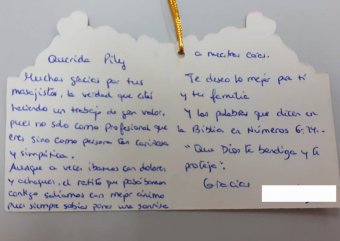 Querida Pily
Muchas gracias por tus
masajistos, la verdad que estás
haciendo un trabajo de gran valor,
pues no solo como profesional que
eres sino como persona tan cariñosa
y simpática.
Aunque a veces ibamos con dolores
y achaques, el ratito que pasábamos
contigo salíamos con mejor ánimo
pues siempre sabías poner una sonrisa
a nuestras caras.
Te deseo lo mejor por ti
y tu familia
Y las palabras que dicen en
la Biblia en Números 6:24..
"Que Dios te bendiga y te
proteja".
Gracias